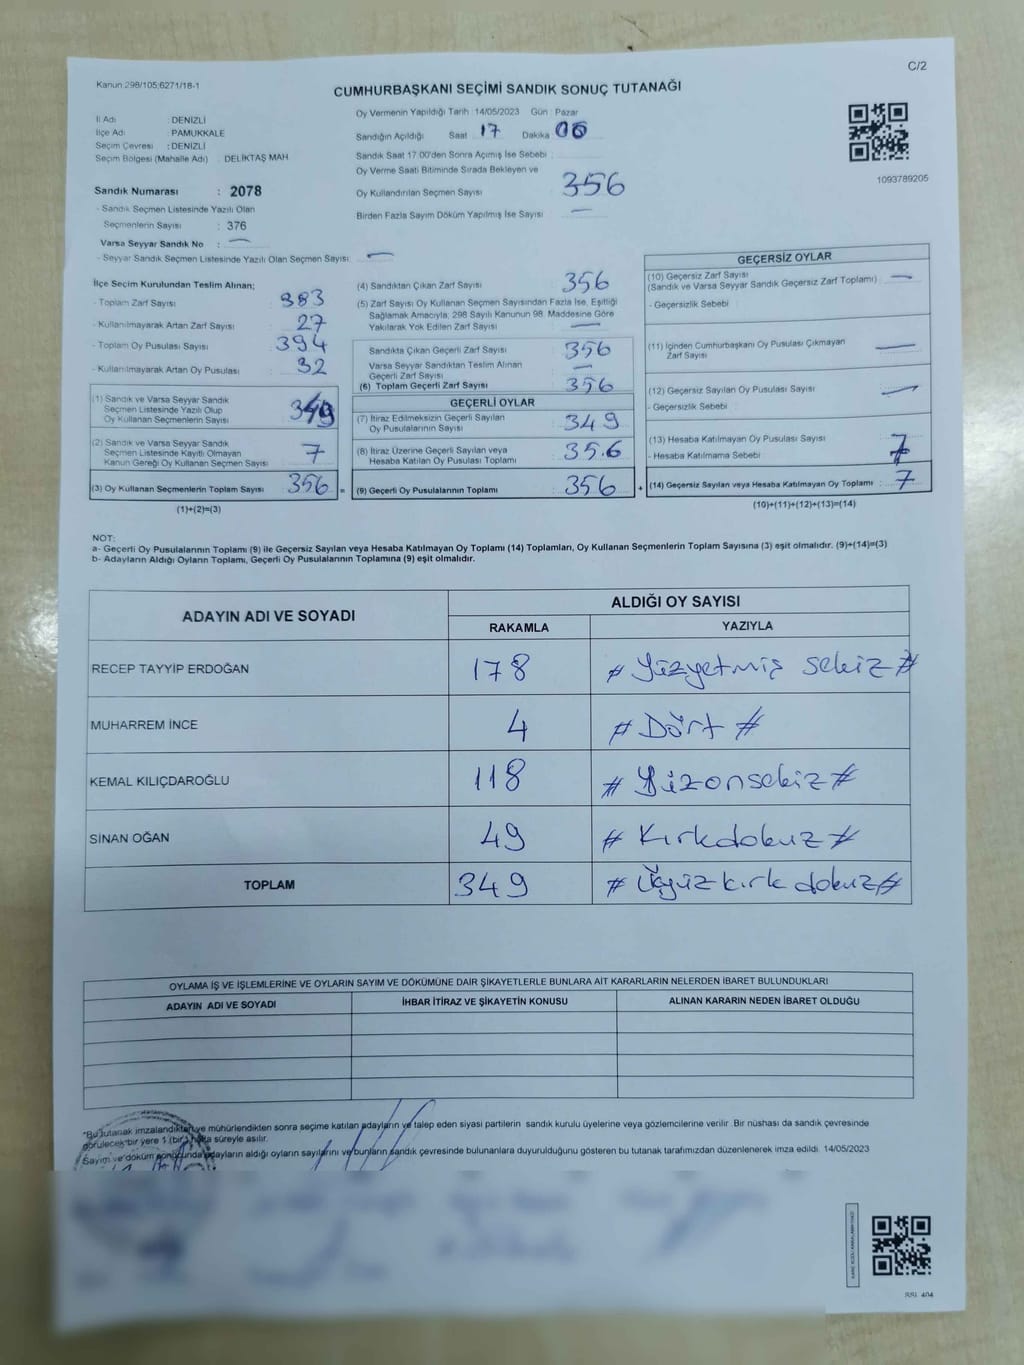 C/2
Kanun:298/105;6271/18-1
CUMHURBAŞKANI SEÇİMİ SANDIK SONUÇ TUTANAĞI
İl Adı : DENİZLİ
İlçe Adı : PAMUKKALE
Seçim Çevresi : DENİZLİ
Seçim Bölgesi (Mahalle Adı) : DELİKTAŞ MAH.
Sandık Numarası : 2078
- Sandık Seçmen Listesinde Yazılı Olan
Seçmenlerin Sayısı : 376
Varsa Seyyar Sandık No : —
- Seyyar Sandık Seçmen Listesinde Yazılı Olan Seçmen Sayısı: —
Oy Vermenin Yapıldığı Tarih :14/05/2023 Gün : Pazar
Sandığın Açıldığı Saat : 17 Dakika : 00
Sandık Saat 17:00'den Sonra Açılmış İse Sebebi :
Oy Verme Saati Bitiminde Sırada Bekleyen ve
Oy Kullandırılan Seçmen Sayısı : 356
Birden Fazla Sayım Döküm Yapılmış İse Sayısı : —
1093789205
İlçe Seçim Kurulundan Teslim Alınan;
- Toplam Zarf Sayısı : 383
- Kullanılmayarak Artan Zarf Sayısı : 27
- Toplam Oy Pusulası Sayısı : 394
- Kullanılmayarak Artan Oy Pusulası : 32
(1) Sandık ve Varsa Seyyar Sandık
Seçmen Listesinde Yazılı Olup
Oy Kullanan Seçmenlerin Sayısı : 349
(2) Sandık ve Varsa Seyyar Sandık
Seçmen Listesinde Kayıtlı Olmayan
Kanun Gereği Oy Kullanan Seçmen Sayısı : 7
(3) Oy Kullanan Seçmenlerin Toplam Sayısı : 356 =
(1)+(2)=(3)
(4) Sandıktan Çıkan Zarf Sayısı : 356
(5) Zarf Sayısı Oy Kullanan Seçmen Sayısından Fazla İse, Eşitliği
Sağlamak Amacıyla; 298 Sayılı Kanunun 98. Maddesine Göre
Yakılarak Yok Edilen Zarf Sayısı : —
Sandıkta Çıkan Geçerli Zarf Sayısı : 356
Varsa Seyyar Sandıktan Teslim Alınan
Geçerli Zarf Sayısı : —
(6) Toplam Geçerli Zarf Sayısı : 356
GEÇERLİ OYLAR
(7) İtiraz Edilmeksizin Geçerli Sayılan
Oy Pusulalarının Sayısı : 349
(8) İtiraz Üzerine Geçerli Sayılan veya
Hesaba Katılan Oy Pusulası Toplamı : 35.6
(9) Geçerli Oy Pusulalarının Toplamı : 356 +
GEÇERSİZ OYLAR
(10) Geçersiz Zarf Sayısı
(Sandık ve Varsa Seyyar Sandık Geçersiz Zarf Toplamı) : —
- Geçersizlik Sebebi :
(11) İçinden Cumhurbaşkanı Oy Pusulası Çıkmayan
Zarf Sayısı : —
(12) Geçersiz Sayılan Oy Pusulası Sayısı : —
- Geçersizlik Sebebi :
(13) Hesaba Katılmayan Oy Pusulası Sayısı : 7
- Hesaba Katılmama Sebebi :
(14) Geçersiz Sayılan veya Hesaba Katılmayan Oy Toplamı : 7
(10)+(11)+(12)+(13)=(14)
NOT:
a- Geçerli Oy Pusulalarının Toplamı (9) ile Geçersiz Sayılan veya Hesaba Katılmayan Oy Toplamı (14) Toplamları, Oy Kullanan Seçmenlerin Toplam Sayısına (3) eşit olmalıdır. (9)+(14)=(3)
b- Adayların Aldığı Oyların Toplamı, Geçerli Oy Pusulalarının Toplamına (9) eşit olmalıdır.
ADAYIN ADI VE SOYADI
ALDIĞI OY SAYISI
RAKAMLA YAZIYLA
RECEP TAYYİP ERDOĞAN 178 # Yüzyetmiş sekiz #
MUHARREM İNCE 4 # Dört #
KEMAL KILIÇDAROĞLU 118 # Yüzonsekiz #
SİNAN OĞAN 49 # Kırkdokuz #
TOPLAM 349 # Üçyüzkırk dokuz #
OYLAMA İŞ VE İŞLEMLERİNE VE OYLARIN SAYIM VE DÖKÜMÜNE DAİR ŞİKAYETLERLE BUNLARA AİT KARARLARIN NELERDEN İBARET BULUNDUKLARI
ADAYIN ADI VE SOYADI İHBAR İTİRAZ VE ŞİKAYETİN KONUSU ALINAN KARARIN NEDEN İBARET OLDUĞU
*Bu tutanak imzalandıktan ve mühürlendikten sonra seçime katılan adayların ve talep eden siyasi partilerin sandık kurulu üyelerine veya gözlemcilerine verilir. Bir nüshası da sandık çevresinde
görülecek bir yere 1 (bir) hafta süreyle asılır.
Sayım ve döküm sonucunda adayların aldığı oyların sayılarını ve bunların sandık çevresinde bulunanlara duyurulduğunu gösteren bu tutanak tarafımızdan düzenlenerek imza edildi. 14/05/2023